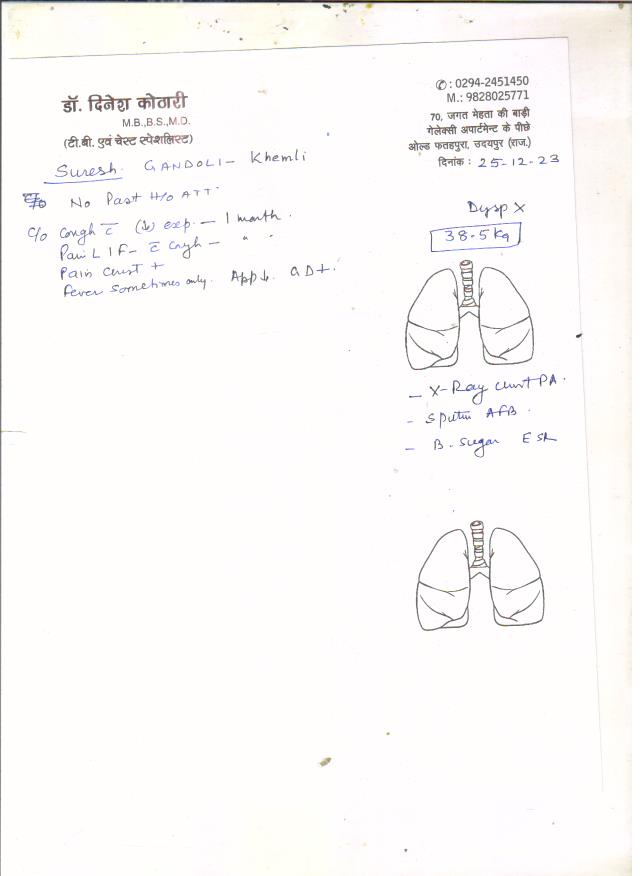 डॉ. दिनेश कोठारी
M.B.,B.S.,M.D.
(टी.बी. एवं चेस्ट स्पेशलिस्ट)
✆ : 0294-2451450
M.: 9828025771
70, जगत मेहता की बाड़ी
गेलेक्सी अपार्टमेन्ट के पीछे
ओल्ड फतहपुरा, उदयपुर (राज.)
दिनांक : 25-12-23
Suresh. GANDOLI - Khemli
No Past H/o ATT
C/o Cough c̄ (↓) exp. - 1 month.
Pain L I F - c̄ Cough - " "
Pain Chest +
Fever sometimes only. App↓. GD+.
Dysp X
38.5 kg
- X-Ray Chest PA.
- Sputm AFB.
- B. Sugar ESR